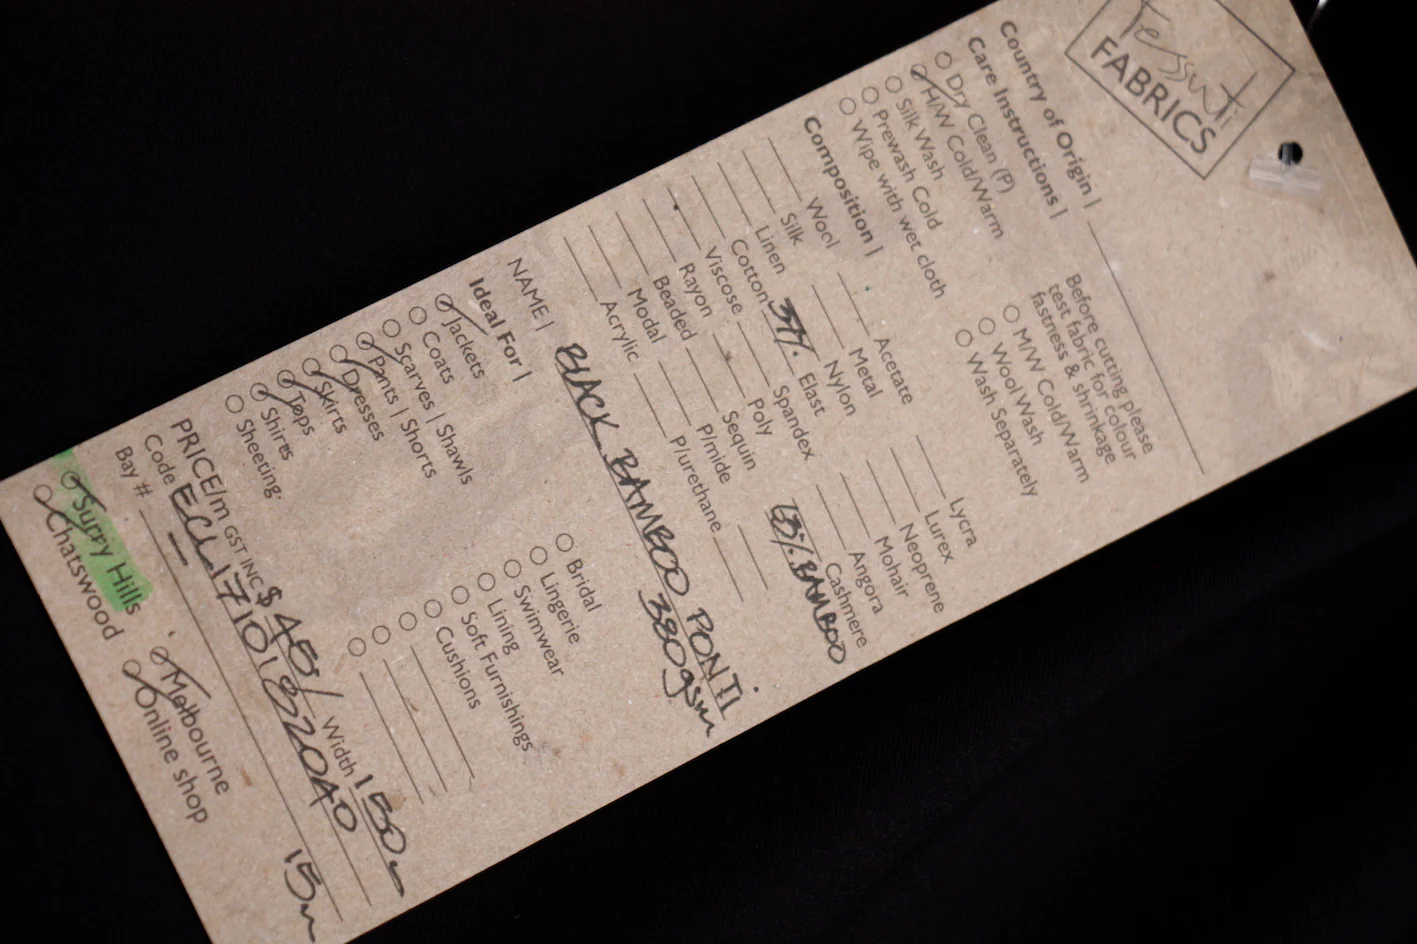 Tessuti
FABRICS
Country of Origin |
Care Instructions |
Dry Clean (P)
H/W Cold/Warm
Silk Wash
Prewash Cold
Wipe with wet cloth
Before cutting please
test fabric for colour
fastness & shrinkage
M/W Cold/Warm
Wool Wash
Wash Separately
Composition |
Wool
Silk
Linen
Cotton
Viscose
Rayon
Beaded
Modal
Acrylic
Acetate
Metal
Nylon
Elast
Spandex
Poly
Sequin
P/mide
P/urethane
Lycra
Lurex
Neoprene
Mohair
Angora
Cashmere
BAMBOO
NAME | BLACK BAMBOO PONTI
380gsm
Ideal For |
Jackets
Coats
Scarves | Shawls
Pants | Shorts
Dresses
Skirts
Tops
Shirts
Sheeting.
Bridal
Lingerie
Swimwear
Lining
Soft Furnishings
Cushions
PRICE/m GST INC $ 45/ Width 150
Code
Bay # 15m
Surry Hills
Chatswood
Melbourne
Online shop